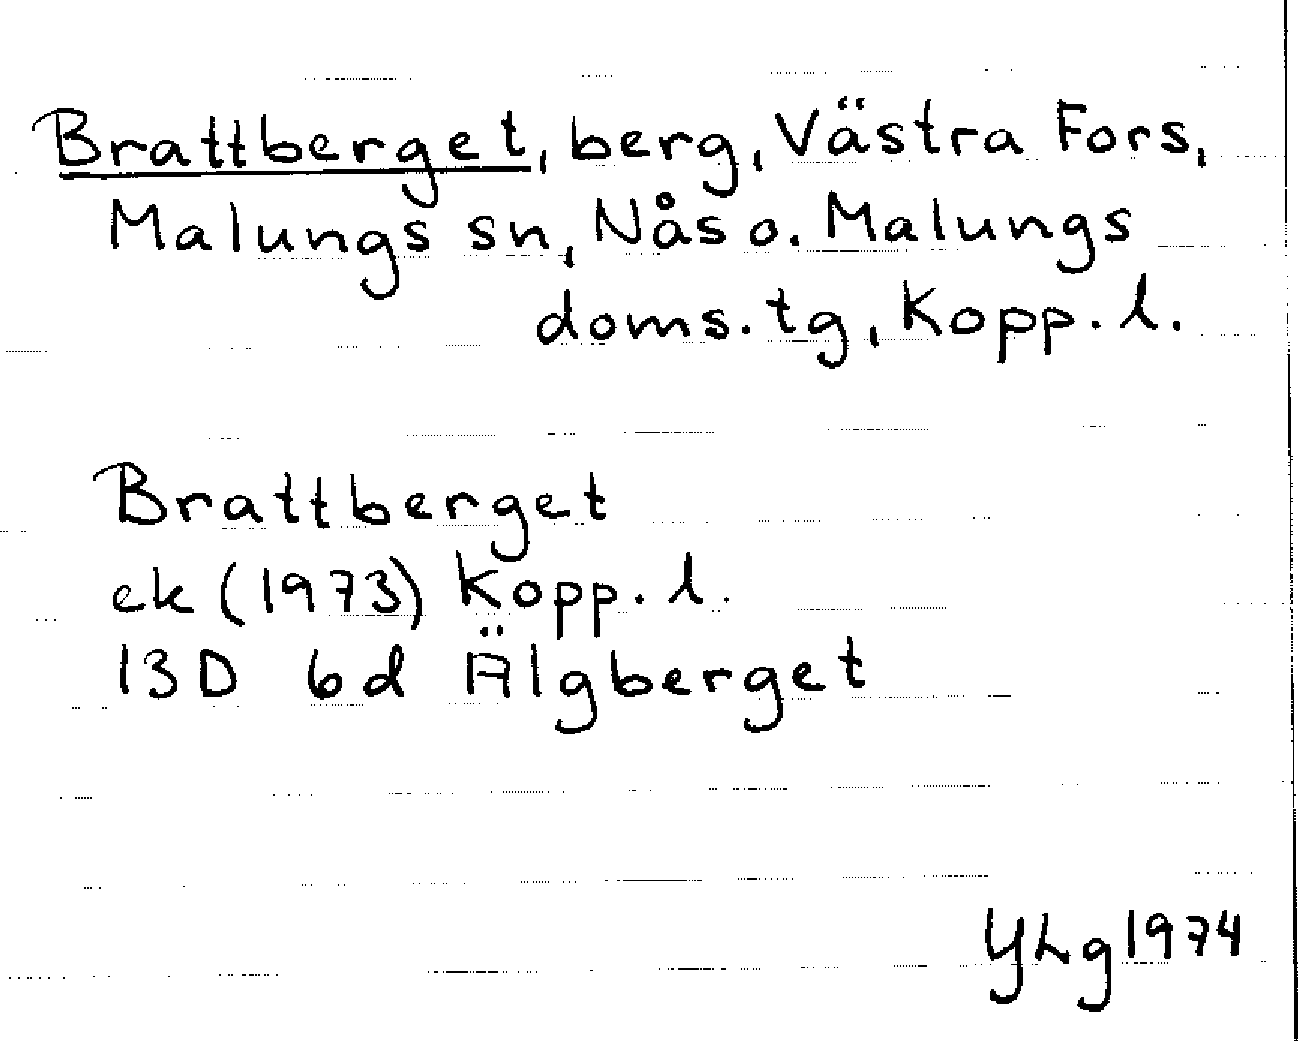 Brattberget, berg, Västra Fors,
Malungs sn, Nås o. Malungs
doms.tg, Kopp. l.
Brattberget
ek (1973) Kopp. l.
13D 6d Älgberget
YLg 1974